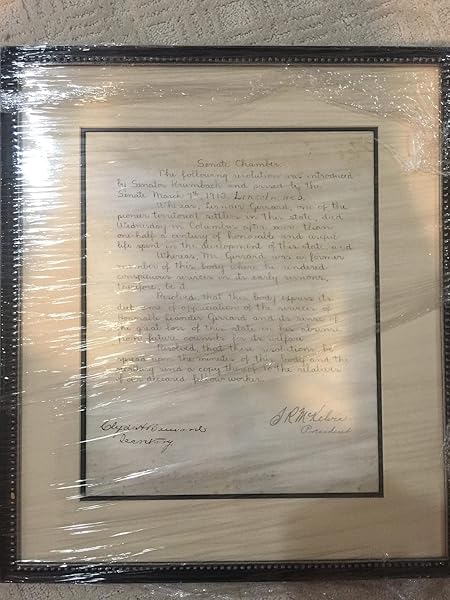 Senate Chamber.
The following resolution was introduced
by Senator Krumbach and passed by the
Senate March 7th, 1913. Lincoln,
Whereas, Leander Gerrard, one of the
pioneer territorial settlers in this state, died
Wednesday in Columbus after more than
one-half a century of honorable and useful
life spent in the development of this state, and
Whereas, Mr. Gerrard was a former
member of this body where he rendered
conspicuous services in its early sessions,
therefore, be it
Resolved, that this body express its
due sense of appreciation of the services of
Honorable Leander Gerrard and its sense of
the great loss of this state in his absence
from future counsels for its welfare.
Resolved, that these resolutions be
spread upon the minutes of this body and the
secretary send a copy thereof to the relatives
of our deceased fellow worker.
Clyde H. Barnard
Secretary
S R McKelvie
President